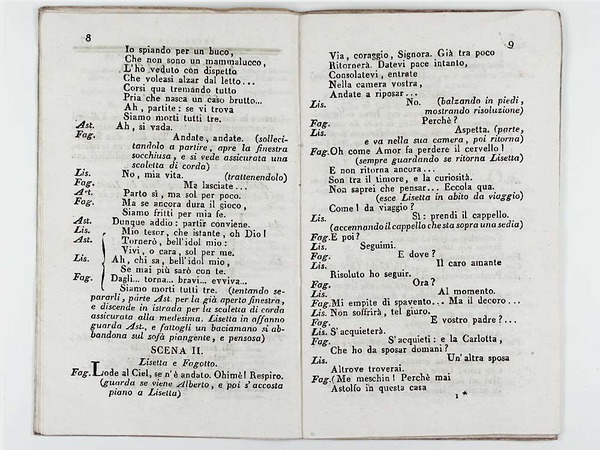 8
Io spiando per un buco,
Che non sono un mammalucco,
L'hò veduto con dispetto
Che voleasi alzar dal letto...
Corsi qua tremando tutto
Pria che nasca un caso brutto...
Ah, partite: se vi trova
Siamo morti tutti tre.
Ast. Ah, si vada.
Fag. Andate, andate. (solleci-
tandolo a partire, apre la finestra
socchiusa, e si vede assicurata una
scaletta di corda)
Lis. No, mia vita. (trattenendolo)
Fag. Ma lasciate...
Ast. Parto sì, ma sol per poco.
Fag. Ma se ancora dura il gioco,
Siamo fritti per mia fe.
Ast. Dunque addio: partir conviene.
Lis. Mio tesor, che istante, oh Dio!
Ast. Tornerò, bell'idol mio:
Vivi, o cara, sol per me.
Lis. Ah, chi sa, bell'idol mio,
Se mai più sarò con te.
Fag. Dagli... torna... bravi... evviva...
Siamo morti tutti tre. (tentando se-
pararli, parte Ast. per la già aperta finestra,
e discende in istrada per la scaletta di corda
assicurata alla medesima. Lisetta in affanno
guarda Ast., e fattogli un baciamano si ab-
bandona sul sofà piangente, e pensosa)
SCENA II.
Lisetta e Fagotto.
Fag. Lode al Ciel, se n'è andato. Ohimè! Respiro.
(guarda se viene Alberto, e poi s'accosta
piano a Lisetta)
9
Via, coraggio, Signora. Già tra poco
Ritornerà. Datevi pace intanto,
Consolatevi, entrate
Nella camera vostra,
Andate a riposar...
Lis. No. (balzando in piedi,
mostrando risoluzione)
Fag. Perchè?
Lis. Aspetta. (parte,
e va nella sua camera, poi ritorna)
Fag. Oh come Amor fa perdere il cervello!
(sempre guardando se ritorna Lisetta)
E non ritorna ancora...
Son tra il timore, e la curiosità.
Non saprei che pensar... Eccola qua.
(esce Lisetta in abito da viaggio)
Come! da viaggio?
Lis. Sì: prendi il cappello.
(accennando il cappello che sta sopra una sedia)
Fag. E poi?
Lis. Seguimi.
Fag. E dove?
Lis. Il caro amante
Risoluto ho seguir.
Fag. Ora?
Lis. Al momento.
Fag. Mi empite di spavento... Ma il decoro...
Lis. Non soffrirà, tel giuro.
Fag. E vostro padre?...
Lis. S'acquieterà.
Fag. S'acquieti: e la Carlotta,
Che ho da sposar domani?
Lis. Un'altra sposa
Altrove troverai.
Fag. (Me meschin! Perchè mai
Astolfo in questa casa
1 *